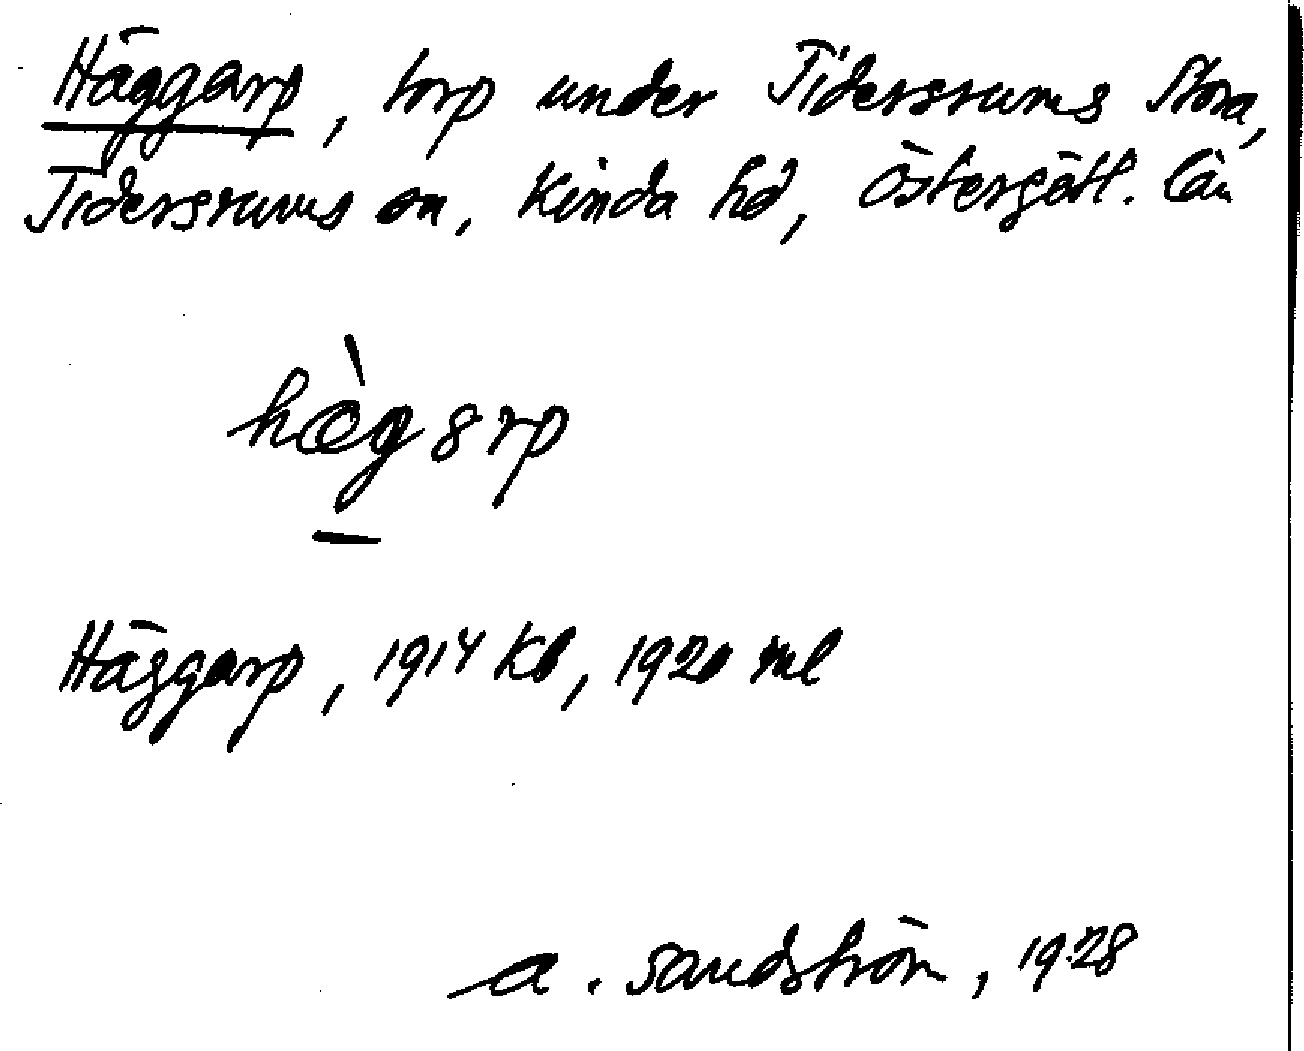 Häggarp, torp under Tidersrums Stora,
Tidersrums sn, Kinda hd, Östergötl. län
hæ̀g8rp
Häggarp, 1914 Kb, 1920 ml
A. Sandström, 1928